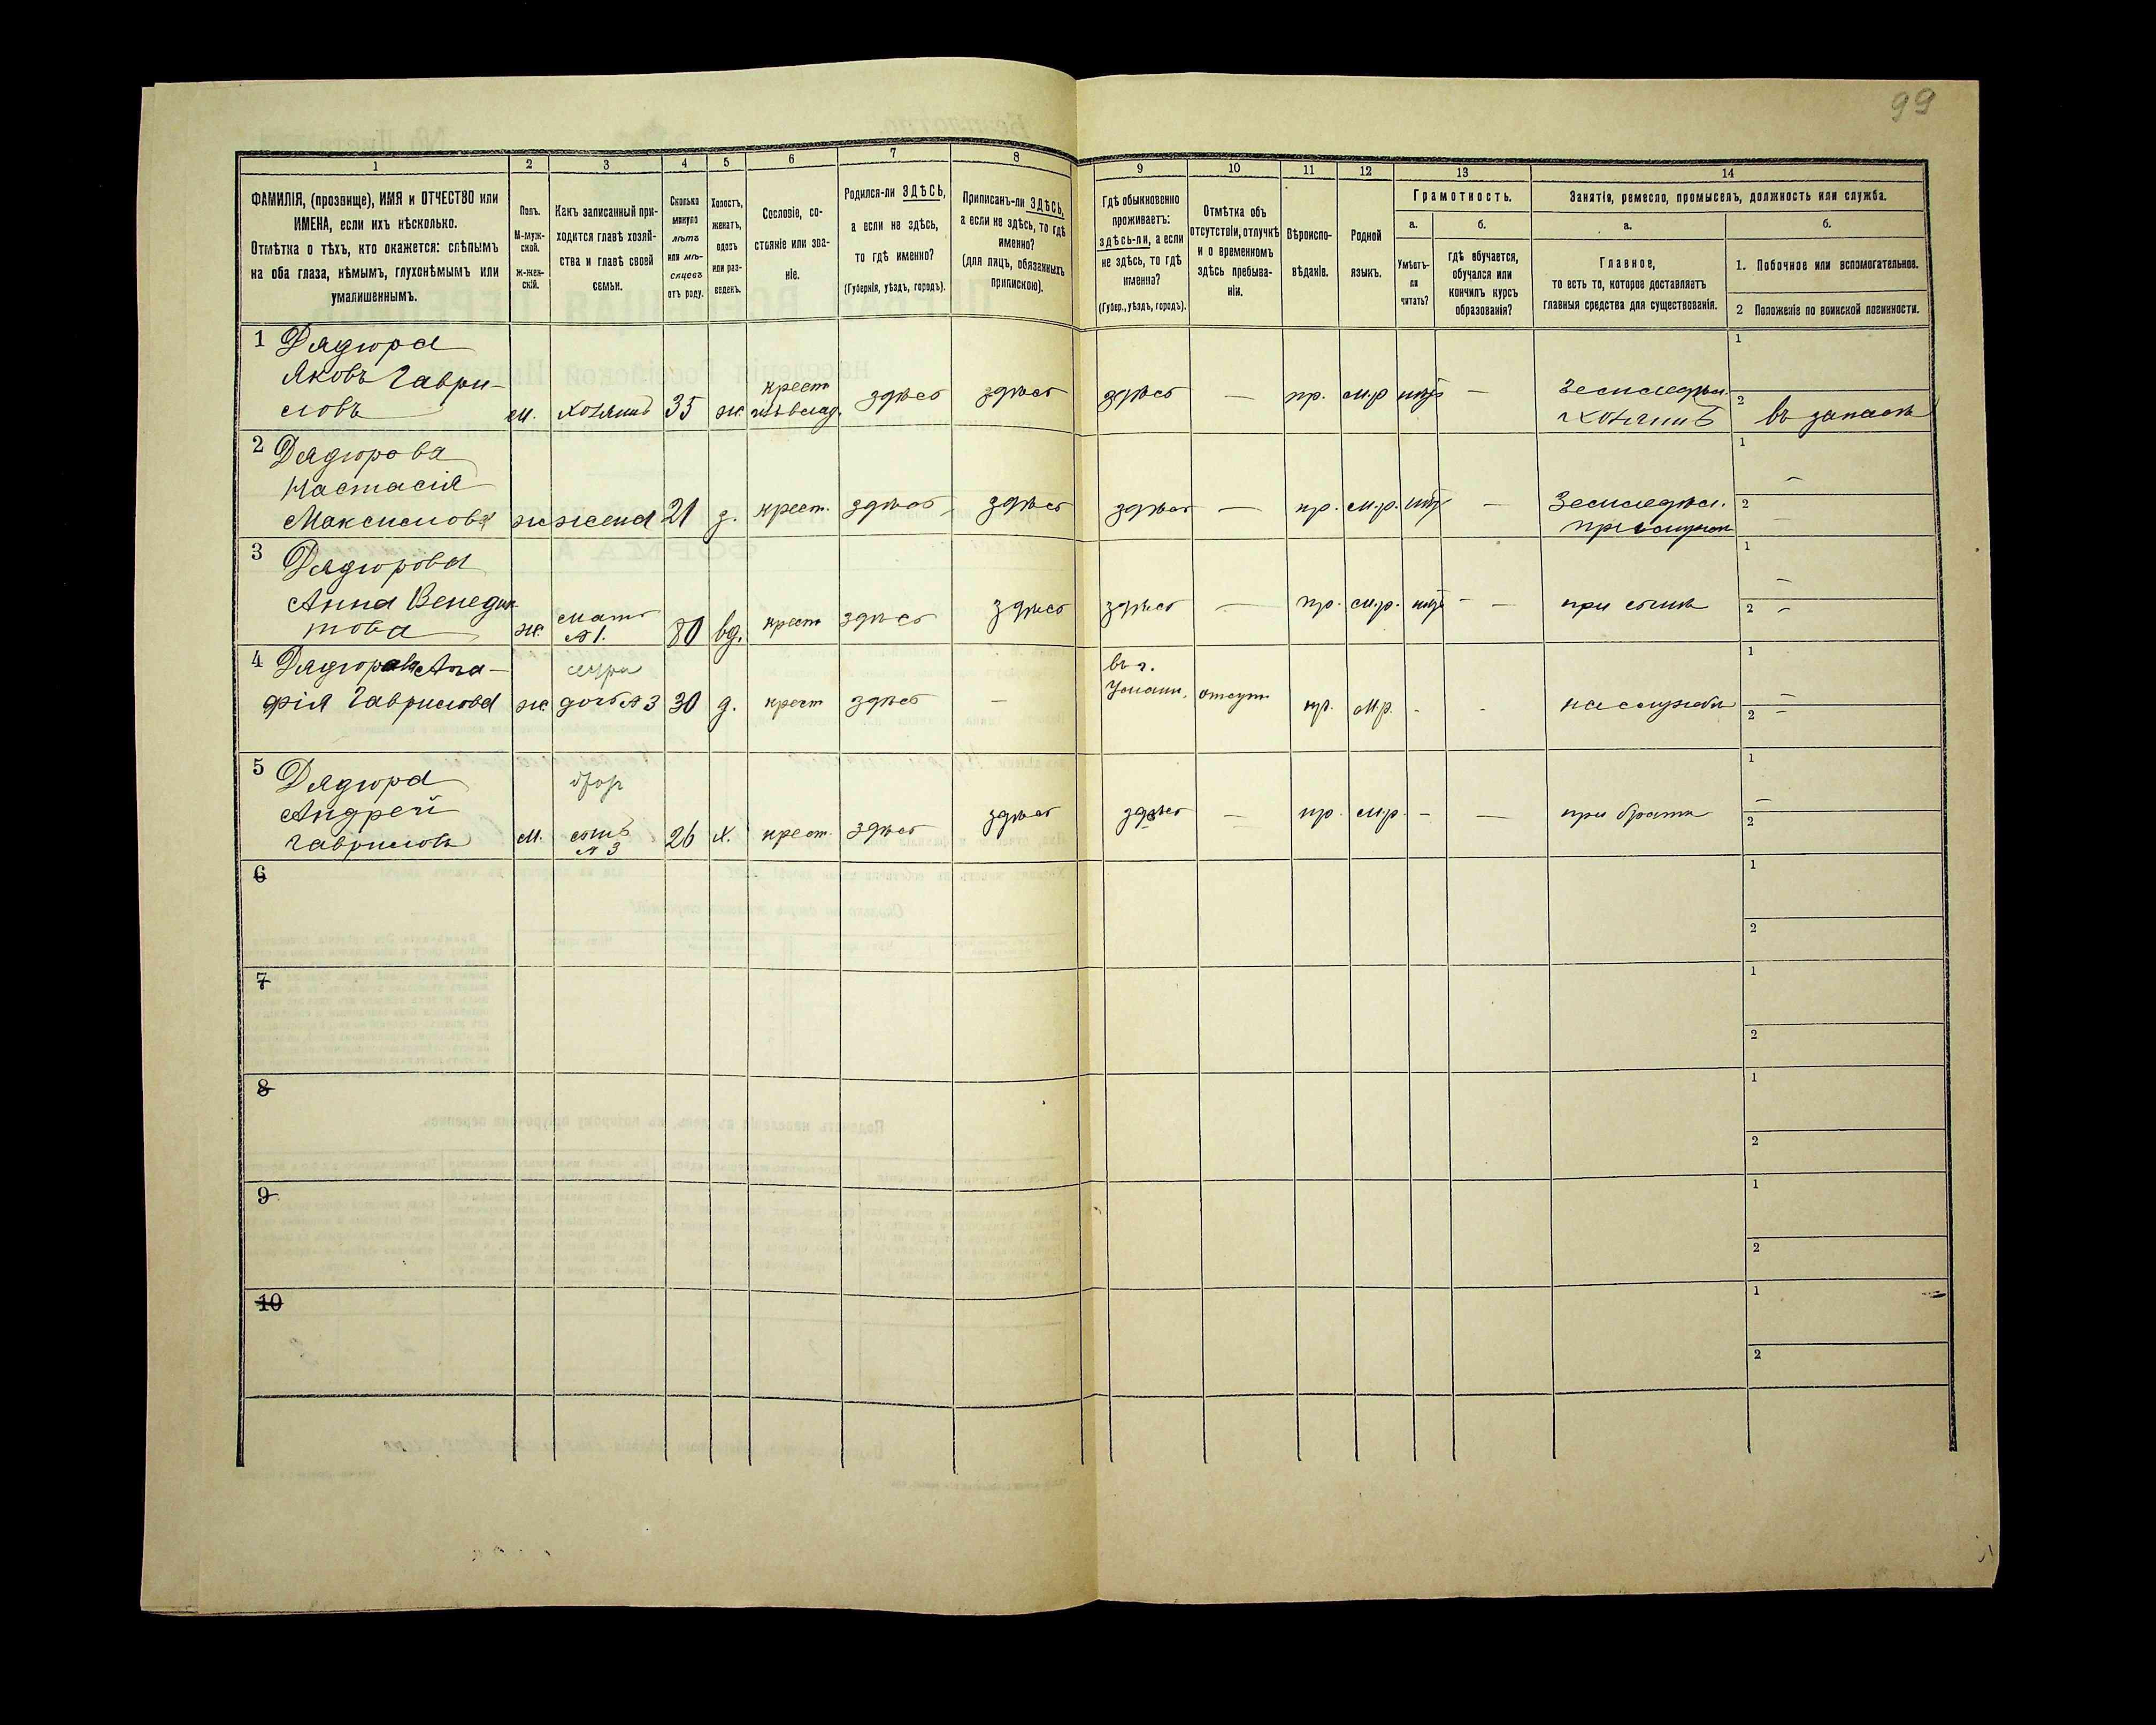 99
1 2 3 4 5 6 7 8 9 10 11 12 13 14
ФАМИЛІЯ, (прозвище), ИМЯ и ОТЧЕСТВО или
ИМЕНА, если ихъ нѣсколько.
Отмѣтка о тѣхъ, кто окажется: слѣпымъ
на оба глаза, нѣмымъ, глухонѣмымъ или
умалишеннымъ.
Полъ.
М-муж-
ской.
Ж-жен-
скій.
Какъ записанный при-
ходится главѣ хозяй-
ства и главѣ своей
семьи.
Сколько
минуло
лѣтъ
или мѣ-
сяцевъ
отъ роду.
Холостъ,
женатъ,
вдовъ
или раз-
веденъ.
Сословіе, со-
стояніе или зва-
ніе.
Родился-ли ЗДѢСЬ,
а если не здѣсь,
то гдѣ именно?
(Губернія, уѣздъ, городъ).
Приписанъ-ли ЗДѢСЬ,
а если не здѣсь, то гдѣ
именно?
(для лицъ, обязанныхъ
припискою).
Гдѣ обыкновенно
проживаетъ:
здѣсь-ли, а если
не здѣсь, то гдѣ
именно?
(Губер., уѣздъ, городъ).
Отмѣтка объ
отсутствіи, отлучкѣ
и о временномъ
здѣсь пребыва-
ніи.
Вѣроиспо-
вѣданіе.
Родной
языкъ.
Грамотность.
а.
Умѣетъ-
ли
читать?
б.
гдѣ обучается,
обучался или
кончилъ курсъ
образованія?
Занятія, ремесло, промыселъ, должность или служба.
а.
Главное,
то есть то, которое доставляетъ
главныя средства для существованія.
б.
1. Побочное или вспомогательное.
2 Положеніе по воинской повинности.
1 Дядюра
Яковъ Гаври-
ловъ
м. хозяинъ 35 ж. крест
здѣсь здѣсь здѣсь — пр. м.р —
хозяинъ
1
2 въ запасѣ
2 Дядюрова
Настасія
Максимова
ж жена 21 з. крест. здѣсь здѣсь здѣсь — пр. м.р. —
Земледѣл.
1 —
2 —
3 Дядюрова
Анна Венедик
това
ж. мать
№ 1. 80 вд. крест здѣсь здѣсь здѣсь — пр. м.р. — — при сынѣ
1 —
2 —
4 Дядюрова Ага-
фія Гаврилова
ж. сестра
дочь № 3 30 д. крест здѣсь —
въ г.
Умани. отсут. пр. м.р. - - на службѣ
1 —
2 —
5 Дядюра
Андрей
Гавриловъ
м. брат
сынъ
№ 3 26 х. крест. здѣсь здѣсь здѣсь — пр. м.р. - — при братѣ
1 —
2
6
1
2
7
1
2
8
1
2
9
1
2
10
1
2